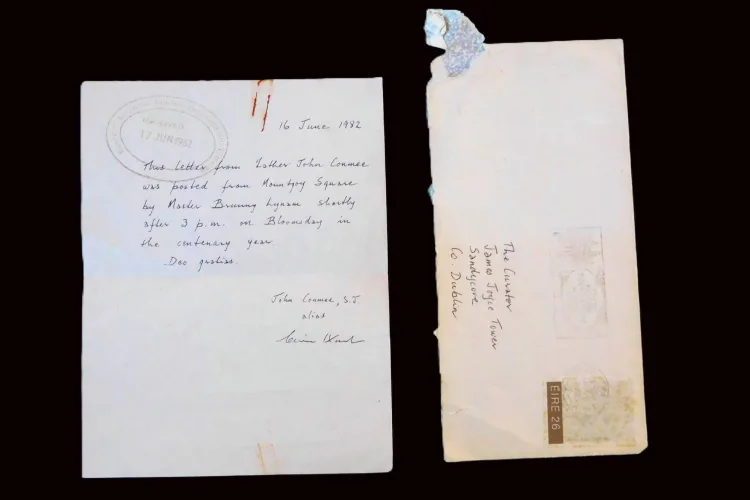 RECEIVED
17 JUN 1982
16 June 1982
This letter from Father John Conmee
was posted from Mountjoy Square
by Master Brunny Lynam shortly
after 3 p.m. on Bloomsday in
the centenary year.
Deo gratias.
John Conmee, S.J.
alias
The Curator
James Joyce Tower
Sandycove
Co. Dublin
ÉIRE 26